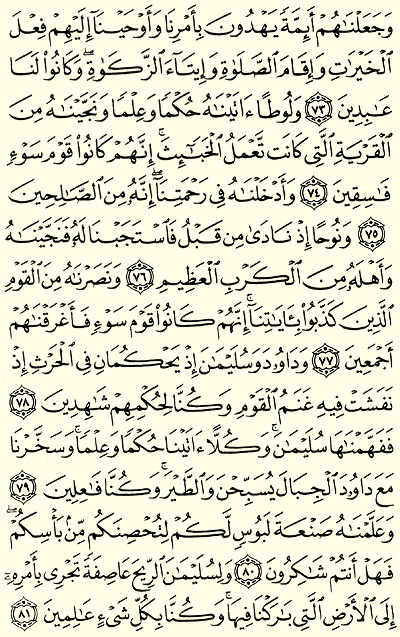 وَجَعَلْنَٰهُمْ أَئِمَّةً يَهْدُونَ بِأَمْرِنَا وَأَوْحَيْنَآ إِلَيْهِمْ فِعْلَ
ٱلْخَيْرَٰتِ وَإِقَامَ ٱلصَّلَوٰةِ وَإِيتَآءَ ٱلزَّكَوٰةِ ۖ وَكَانُوا۟ لَنَا
عَٰبِدِينَ ﴿٧٣﴾ وَلُوطًا ءَاتَيْنَٰهُ حُكْمًا وَعِلْمًا وَنَجَّيْنَٰهُ مِنَ
ٱلْقَرْيَةِ ٱلَّتِى كَانَت تَّعْمَلُ ٱلْخَبَٰٓئِثَ ۗ إِنَّهُمْ كَانُوا۟ قَوْمَ سَوْءٍ
فَٰسِقِينَ ﴿٧٤﴾ وَأَدْخَلْنَٰهُ فِى رَحْمَتِنَآ ۖ إِنَّهُۥ مِنَ ٱلصَّٰلِحِينَ
﴿٧٥﴾ وَنُوحًا إِذْ نَادَىٰ مِن قَبْلُ فَٱسْتَجَبْنَا لَهُۥ فَنَجَّيْنَٰهُ
وَأَهْلَهُۥ مِنَ ٱلْكَرْبِ ٱلْعَظِيمِ ﴿٧٦﴾ وَنَصَرْنَٰهُ مِنَ ٱلْقَوْمِ
ٱلَّذِينَ كَذَّبُوا۟ بِـَٔايَٰتِنَآ ۚ إِنَّهُمْ كَانُوا۟ قَوْمَ سَوْءٍ فَأَغْرَقْنَٰهُمْ
أَجْمَعِينَ ﴿٧٧﴾ وَدَاوُۥدَ وَسُلَيْمَٰنَ إِذْ يَحْكُمَانِ فِى ٱلْحَرْثِ إِذْ
نَفَشَتْ فِيهِ غَنَمُ ٱلْقَوْمِ وَكُنَّا لِحُكْمِهِمْ شَٰهِدِينَ ﴿٧٨﴾
فَفَهَّمْنَٰهَا سُلَيْمَٰنَ ۚ وَكُلًّا ءَاتَيْنَا حُكْمًا وَعِلْمًا ۚ وَسَخَّرْنَا
مَعَ دَاوُۥدَ ٱلْجِبَالَ يُسَبِّحْنَ وَٱلطَّيْرَ ۚ وَكُنَّا فَٰعِلِينَ ﴿٧٩﴾
وَعَلَّمْنَٰهُ صَنْعَةَ لَبُوسٍ لَّكُمْ لِتُحْصِنَكُم مِّنۢ بَأْسِكُمْ ۖ
فَهَلْ أَنتُمْ شَٰكِرُونَ ﴿٨٠﴾ وَلِسُلَيْمَٰنَ ٱلرِّيحَ عَاصِفَةً تَجْرِى بِأَمْرِهِۦٓ
إِلَى ٱلْأَرْضِ ٱلَّتِى بَٰرَكْنَا فِيهَا ۚ وَكُنَّا بِكُلِّ شَىْءٍ عَٰلِمِينَ ﴿٨١﴾